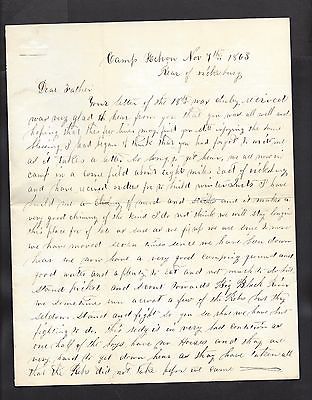 Camp Nov 7th 1863
Rear of Vicksburg
Dear Father
Your letter of the 18th was duley received
was very glad to hear from you that you was all well and
hoping that this few lines may find you still injoying the same
blessing I had began to think that you had forgot to write me
as it takes a letter so long to get hear, we are now in
camp in a cornfield about eight miles East of vicksburg
and have received orders to build winterhuts I have
build one of mud and and it makes a
very good chimny of the kind I do not think we will stay long in
this place for if we as soon as we fix up we move
we have moved seven times since we have been down
hear we now have a very good camping ground and
good water and a plenty to eat and not much to do but
stand picket and scout towards Big Black River
we sometimes run acrost a few of the Rebs but thay
seldom stand and fight so you see we have but
fighting to do. this Regt is in very bad condition as
one half of the boys have no Horses and thay are
very hard to get down hear as thay have taken all
that the Rebs did not take before we came